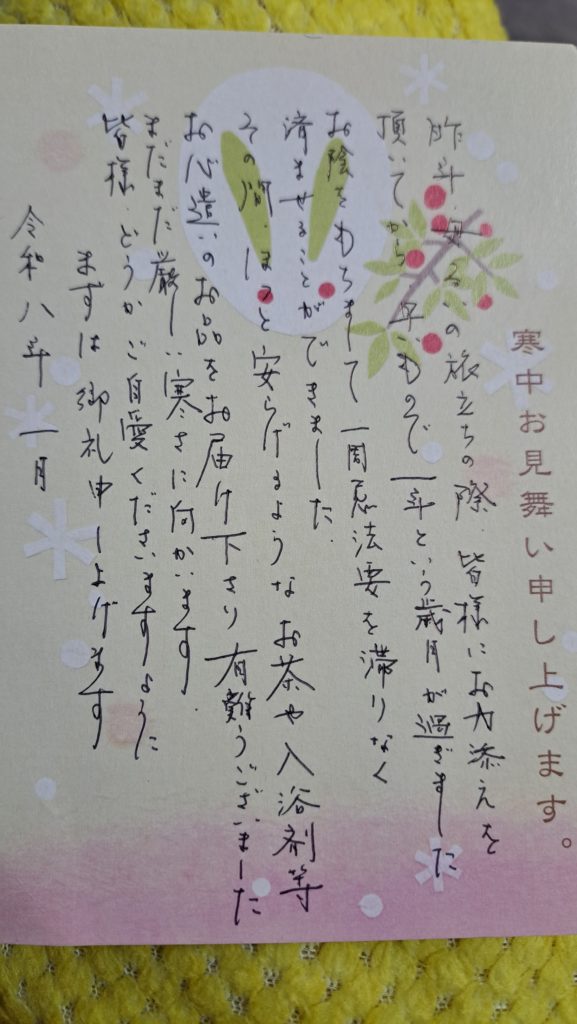 寒中お見舞い申し上げます。
昨年、母の旅立ちの際、皆様にお力添えを
頂いてから早いもので一年という歳月が過ぎました
お陰をもちまして一周忌法要を滞りなく
済ませることができました.
その間、ほっと安らげるようなお茶や入浴剤等
お心遣いのお品をお届け下さり有難うございました
まだまだ厳しい寒さに向かいます.
皆様、どうかご自愛くださいますように
まずは御礼申し上げます
令和八年 一月